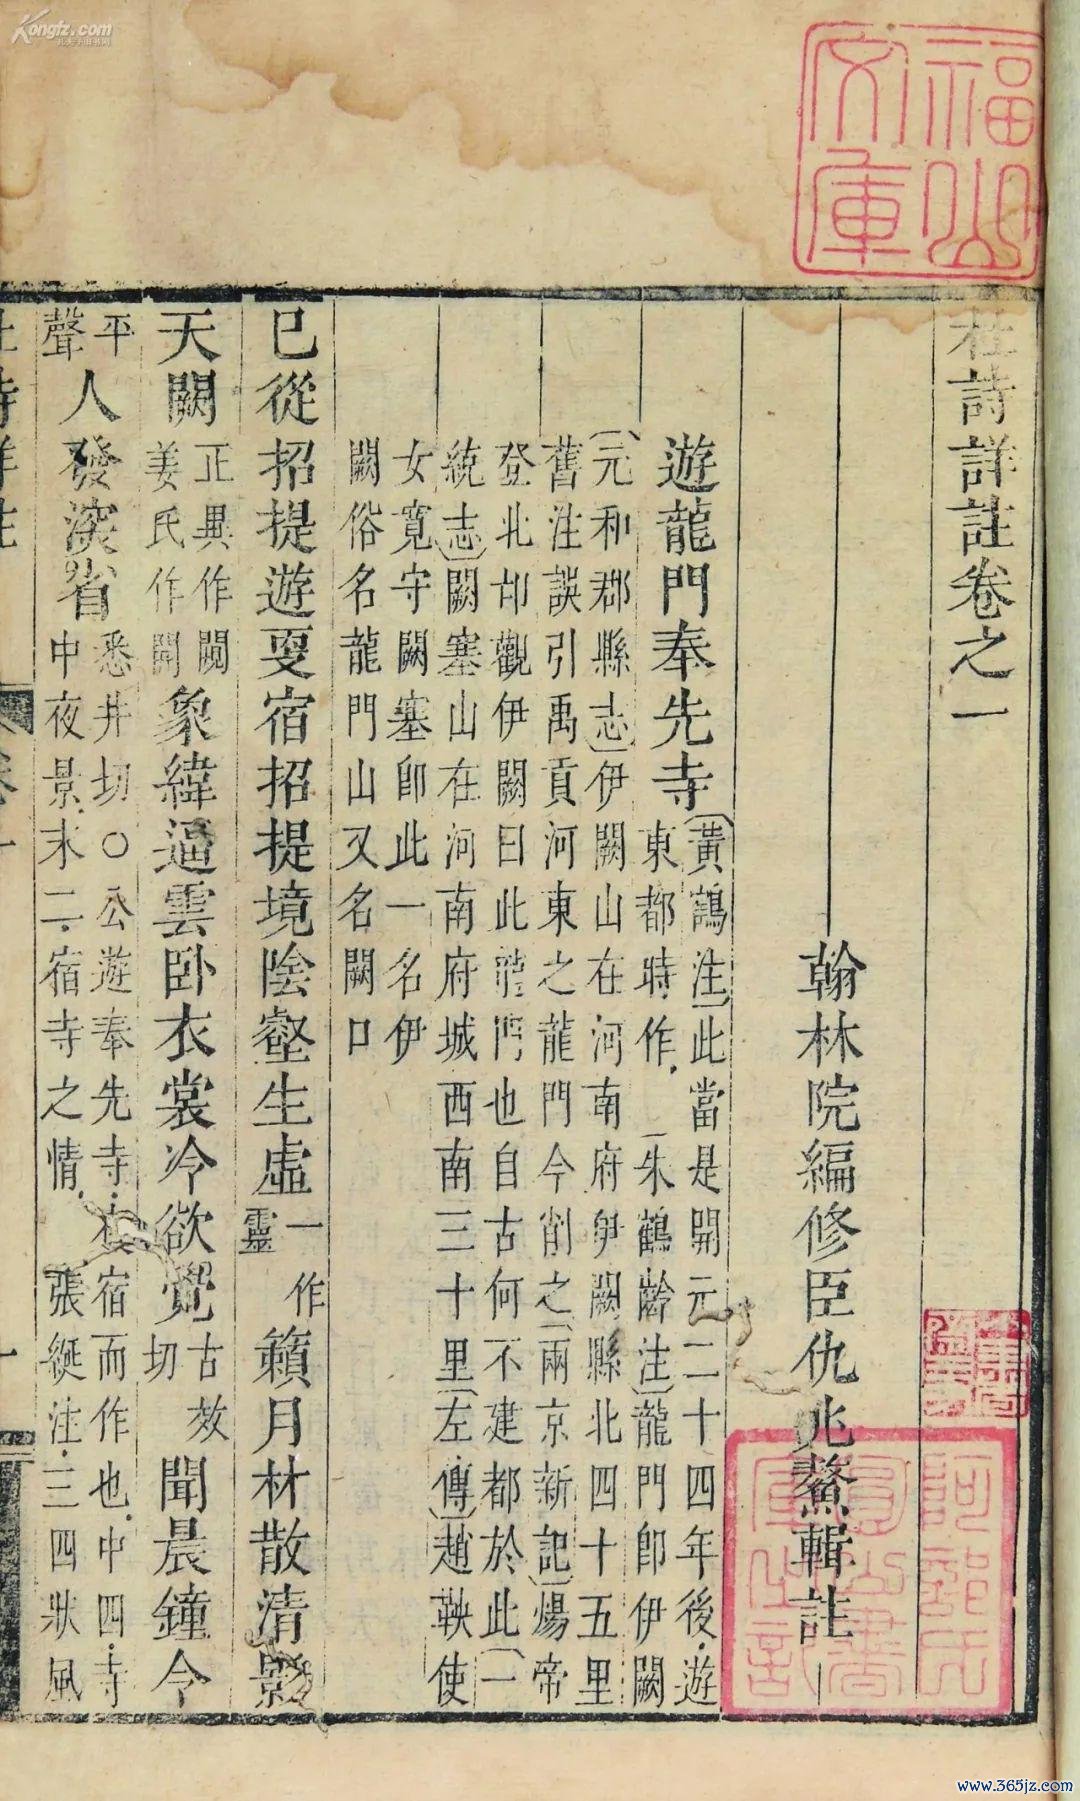 Kongfz.com
福山
文庫
杜詩詳註卷之一
翰林院編修臣仇兆鰲輯註
遊龍門奉先寺
〔黃鶴注〕此當是開元二十四年後遊
東都時作 〔朱鶴齡注〕龍門卽伊闕
〔元和郡縣志〕伊闕山在河南府伊闕縣北四十五里
舊注誤引禹貢河東之龍門今削之〔兩京新記〕煬帝
登北邙觀伊闕曰此龍門也自古何不建都於此〔一
統志〕闕塞山在河南府城西南三十里〔左傳〕趙鞅使
女寬守闕塞卽此一名伊
闕俗名龍門山又名闕口
已從招提遊更宿招提境陰壑生虛一作靈籟月林散清影
天闕正異作閱姜氏作開象緯逼雲臥衣裳冷欲覺古效切聞晨鐘令
平聲人發深省
悉井切○公遊奉先寺宿而作也中四寺
中夜景末二宿寺之情 張綖注三四狀風
www.365jz.com